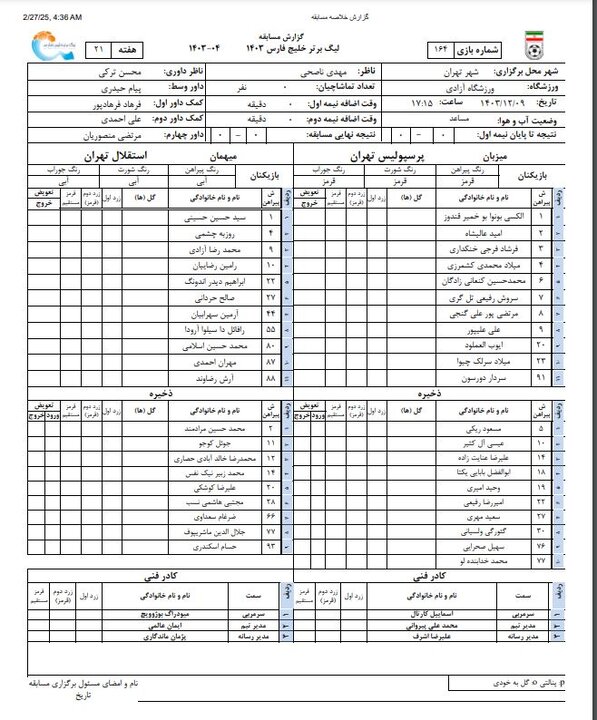 2/27/25, 4:36 AM
گزارش خلاصه مسابقه
گزارش مسابقه
لیگ برتر خلیج فارس ۱۴۰۳ ۰۴-۱۴۰۳
شماره بازی ۱۶۴
هفته ۲۱
شهر محل برگزاری: شهر تهران
ناظر: مهدی ناصحی
ناظر داوری: محسن ترکی
ورزشگاه: ورزشگاه آزادی
تعداد تماشاچیان: ۰ نفر
داور وسط: پیام حیدری
تاریخ: ۱۴۰۳/۱۲/۰۹ ساعت: ۱۷:۱۵
وقت اضافه نیمه اول: ۰ دقیقه
کمک داور اول: فرهاد فرهادپور
وضعیت آب و هوا: مساعد
وقت اضافه نیمه دوم: ۰ دقیقه
کمک داور دوم: علی احمدی
نتیجه تا پایان نیمه اول: ۰ - ۰
نتیجه نهایی مسابقه: ۰ - ۰
داور چهارم: مرتضی منصوریان
میزبان پرسپولیس تهران
بازیکنان
رنگ پیراهن رنگ شورت رنگ جوراب
قرمز قرمز قرمز
ردیف ش پیراهن نام و نام خانوادگی گل (ها) زرد اول زرد دوم (قرمز) قرمز مستقیم تعویض خروج
۱ الکسی بونوا بو خمیر قندوز
۲ امید عالیشاه
۳ فرشاد فرجی خنکداری
۴ میلاد محمدی کشمرزی
۶ محمدحسین کنعانی زادگان
۷ سروش رفیعی تل گری
۸ مرتضی پور علی گنجی
۹ علی علیپور
۲۰ ایوب العملود
۲۳ میلاد سرلک چیوا
۹۱ سردار دورسون
ذخیره
ردیف ش پیراهن نام و نام خانوادگی گل (ها) زرد اول زرد دوم (قرمز) قرمز مستقیم تعویض ورود خروج
۵ مسعود ریگی
۱۰ عیسی آل کثیر
۱۴ علیرضا عنایت زاده
۱۸ ابوالفضل بابایی یکتا
۱۹ وحید امیری
۲۲ امیررضا رفیعی
۲۷ سعید مهری
۳۰ گئورگی ولسیانی
۷۶ سهیل صحرایی
۷۷ محمد خدابنده لو
کادر فنی
ردیف سمت نام و نام خانوادگی زرد اول زرد دوم (قرمز) قرمز مستقیم
۱ سرمربی اسماییل کارتال
۲ مدیر تیم محمد علی پیروانی
۳ مدیر رسانه علیرضا اشرف
میهمان استقلال تهران
بازیکنان
رنگ پیراهن رنگ شورت رنگ جوراب
آبی آبی آبی
ردیف ش پیراهن نام و نام خانوادگی گل (ها) زرد اول زرد دوم (قرمز) قرمز مستقیم تعویض خروج
۱ سید حسین حسینی
۴ روزبه چشمی
۹ محمد رضا آزادی
۱۰ رامین رضاییان
۲۲ ابراهیم دیدر اندونگ
۲۷ صالح حردانی
۴۴ آرمین سهرابیان
۵۵ رافائل دا سیلوا آرودا
۸۰ محمد حسین اسلامی
۸۷ مهران احمدی
۸۸ آرش رضاوند
ذخیره
ردیف ش پیراهن نام و نام خانوادگی گل (ها) زرد اول زرد دوم (قرمز) قرمز مستقیم تعویض ورود خروج
۲ محمد حسین مرادمند
۱۱ جوئل کوجو
۱۲ محمدرضا خالد آبادی حصاری
۱۴ محمد زبیر نیک نفس
۲۰ علیرضا کوشکی
۲۸ مجتبی هاشمی نسب
۶۶ ضرغام سعداوی
۷۷ جلال الدین ماشاریپوف
۹۳ حسام اسکندری
کادر فنی
ردیف سمت نام و نام خانوادگی زرد اول زرد دوم (قرمز) قرمز مستقیم
۱ سرمربی میودراگ بوژوویچ
۲ مدیر تیم ایمان عالمی
۳ مدیر رسانه پژمان ماندگاری
p: پنالتی o: گل به خودی
نام و امضای مسئول برگزاری مسابقه
تاریخ